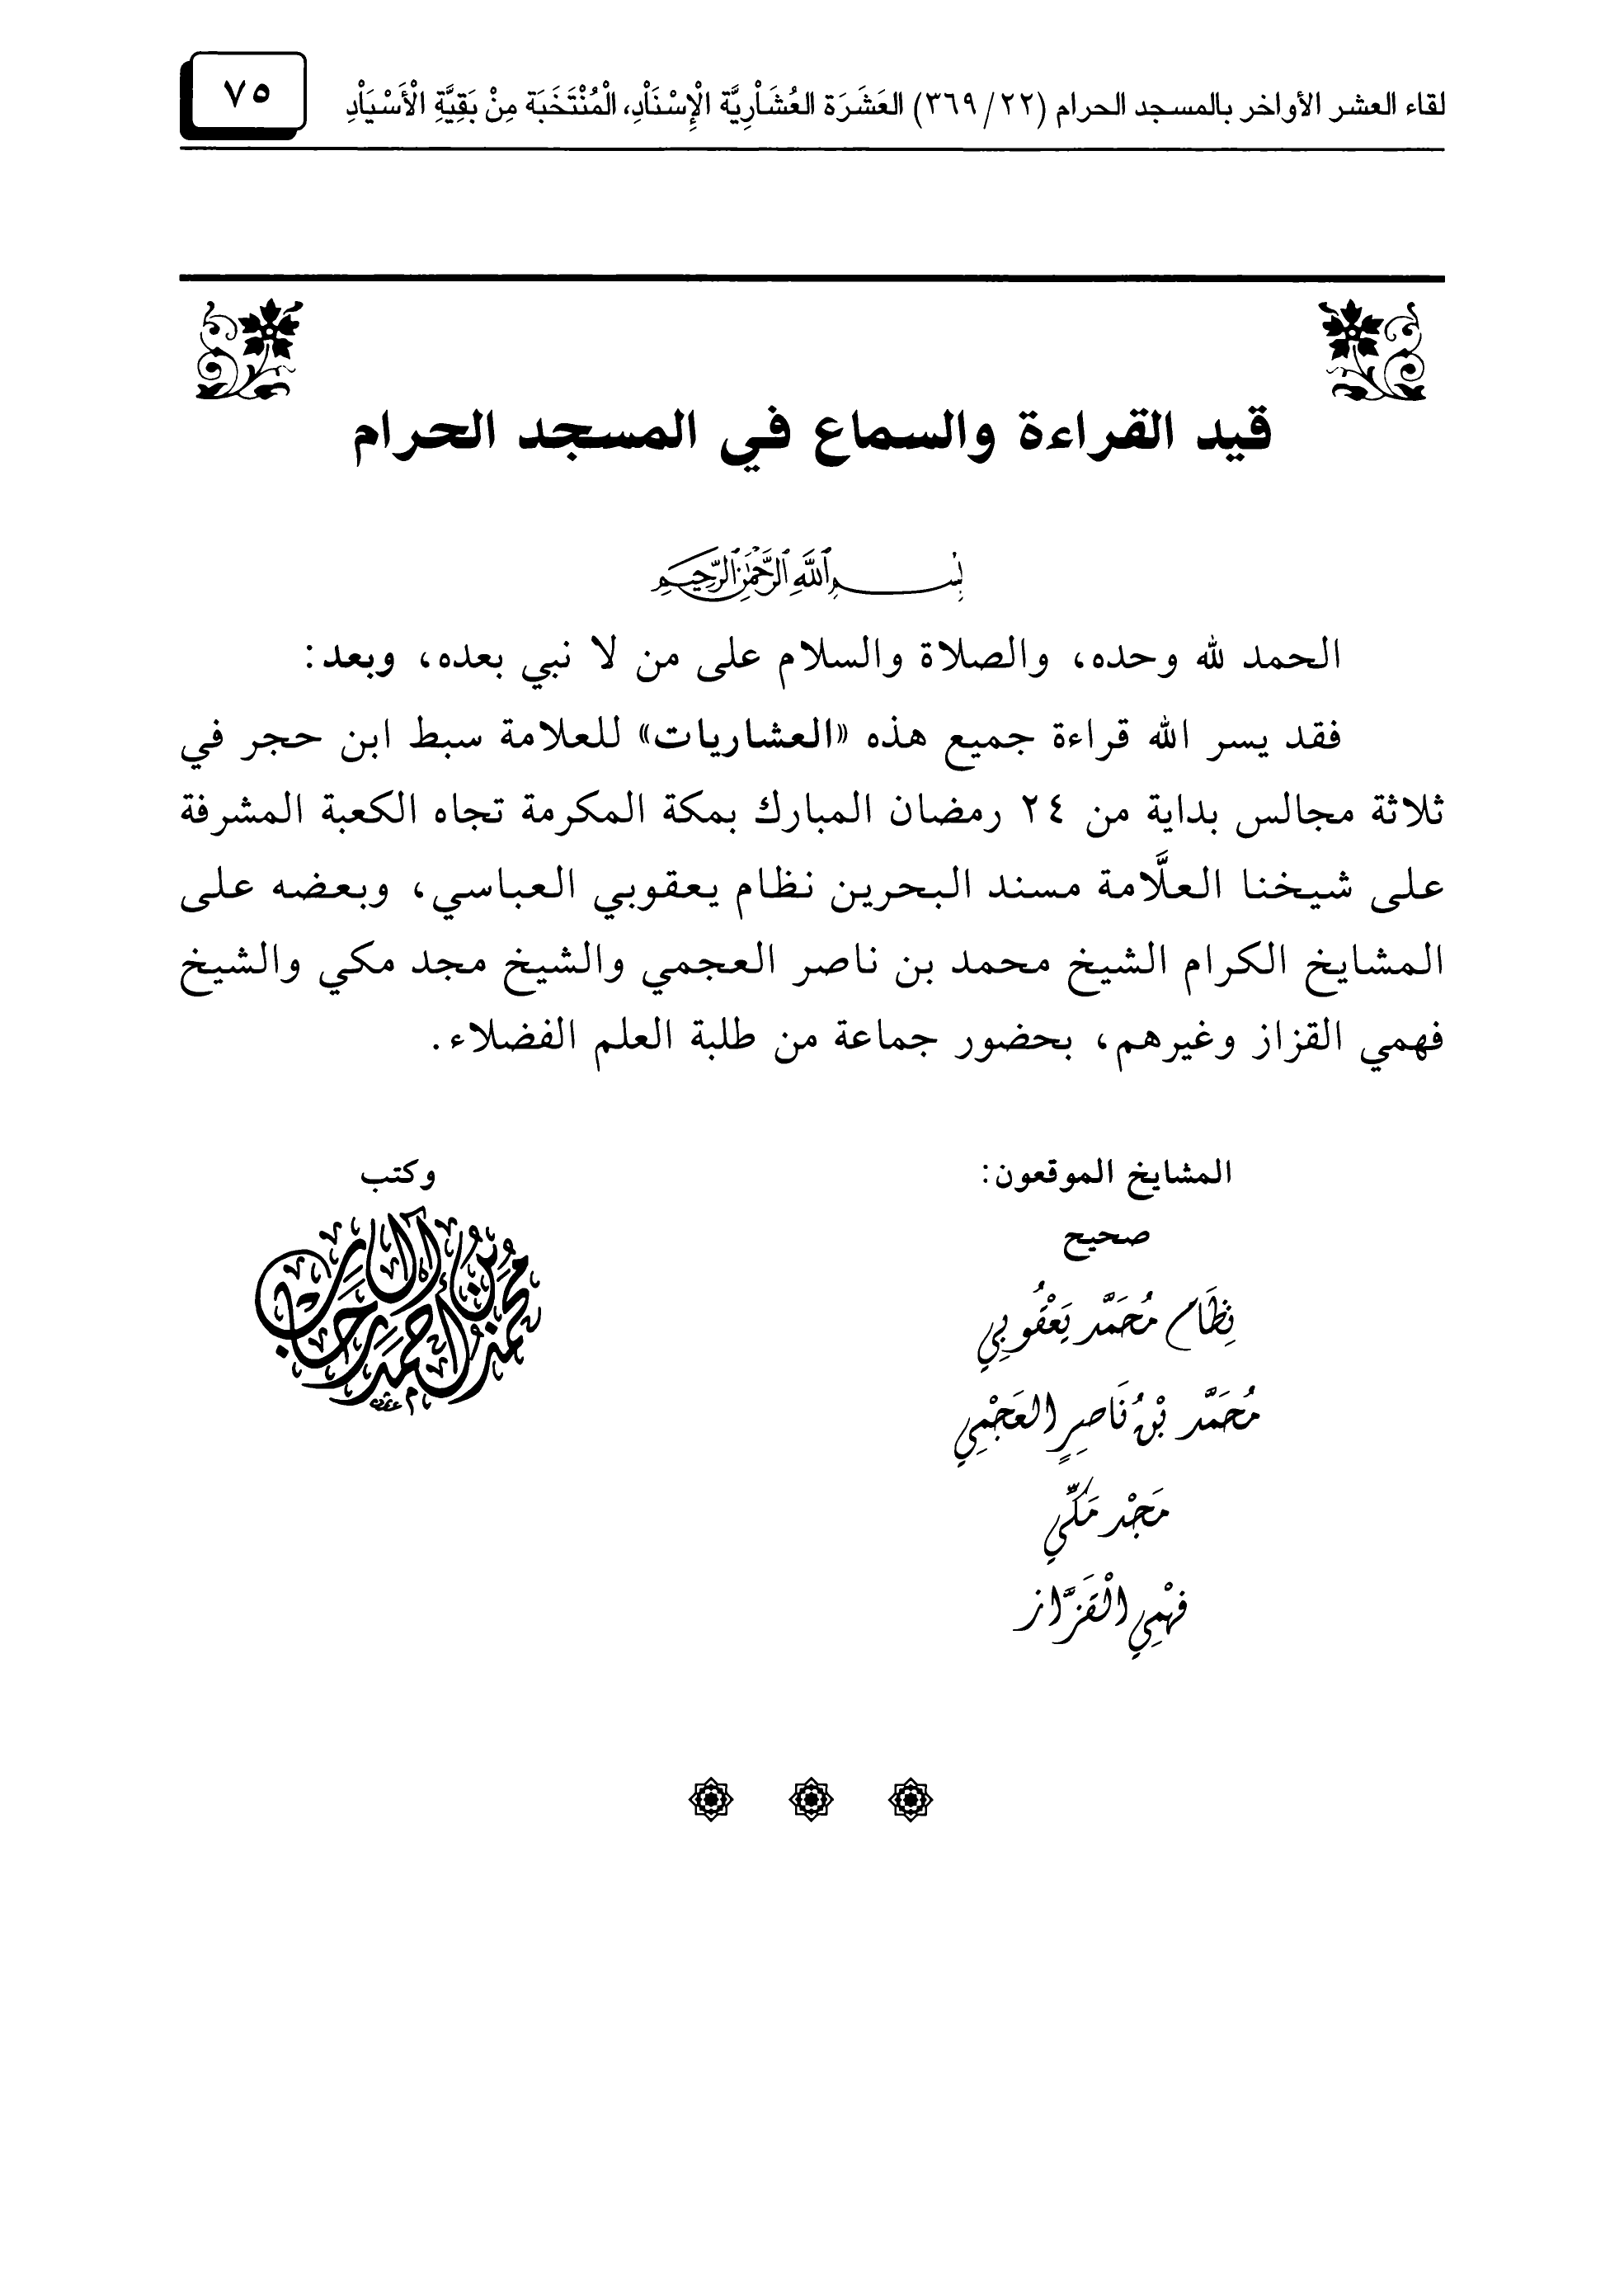 لقاء العشر الأواخر بالمسجد الحرام (٢٢/ ٣٦٩) العَشَرَة العُشَاْرِيَّة الْإِسْنَاْدِ، الْمُنْتَخَبَة مِنْ بَقِيَّةِ الْأَسْيَاْدِ
٧٥
قيد القراءة والسماع في المسجد الحرام
بسم الله الرحمن الرحيم
الحمد لله وحده، والصلاة والسلام على من لا نبي بعده، وبعد:
فقد يسر الله قراءة جميع هذه «العشاريات» للعلامة سبط ابن حجر في
ثلاثة مجالس بداية من ٢٤ رمضان المبارك بمكة المكرمة تجاه الكعبة المشرفة
على شيخنا العلَّامة مسند البحرين نظام يعقوبي العباسي، وبعضه على
المشايخ الكرام الشيخ محمد بن ناصر العجمي والشيخ مجد مكي والشيخ
فهمي القزاز وغيرهم، بحضور جماعة من طلبة العلم الفضلاء.
المشايخ الموقعون:
صحيح
نِظَام مُحَمَّد يَعْقُوبِي
مُحَمَّد بْنُ نَاصِرٍ العَجْمِي
مَجْد مَكِّي
فَهْمِي الْقَزَّاز
وكتب
محمد بن أحمد آل رحاب